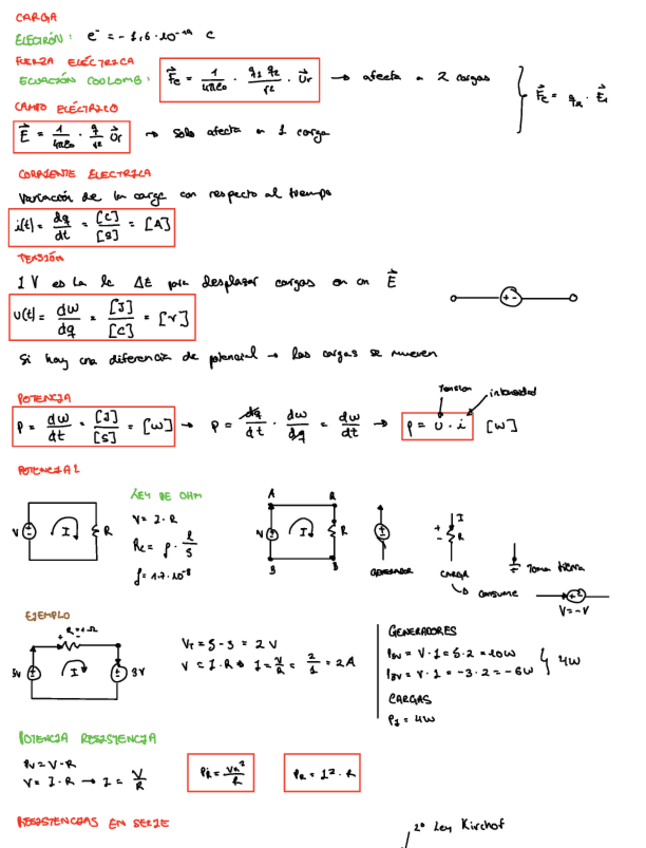 CARGA
ELECTRÓN: e⁻ = -1,6·10⁻¹⁹ C
FUERZA ELÉCTRICA
ECUACIÓN COOLOMB: F⃗e = 1/4πε₀ · q₁ q₂/r² · u⃗r → afecta a 2 cargas
F⃗e = q₂ · E⃗₁
CAMPO ELÉCTRICO
E⃗ = 1/4πε₀ · q/r² u⃗r → solo afecta a 1 carga
CORRIENTE ELECTRICA
Variación de la carga con respecto al tiempo
i(t) = dq/dt = [C]/[S] = [A]
TENSIÓN
1 V es la la ΔE para desplazar cargas en un E⃗
+ -
u(t) = dw/dq = [J]/[C] = [V]
Si hay una diferencia de potencial → las cargas se mueven
Tension
intensidad
POTENCIA
P = dw/dt = [J]/[S] = [W] → P = dq/dt · dw/dq = dw/dt → P = U · i [W]
POTENCIAL
V I R
LEY DE OHM
V = I · R
R = ρ · l/S
ρ = 1.7·10⁻⁸
A B
V I R
B B
GENERADOR
I
+ - R
CARGA
↳ consume
Toma tierra
V = -V
EJEMPLO
+ R = 1 Ω -
5V I 3V
V_T = 5 - 3 = 2 V
V = I · R → I = V/R = 2/1 = 2A
GENERADORES
P5V = V · I = 5 · 2 = 10W
P3V = V · I = -3 · 2 = -6W
4W
CARGAS
P₁ = 4W
POTENCIA RESISTENCIA
Pv = V · R
V = I · R → I = V/R
P_R = V_R²/R
P_R = I² · R
RESISTENCIAS EN SERIE
2º Ley Kirchof